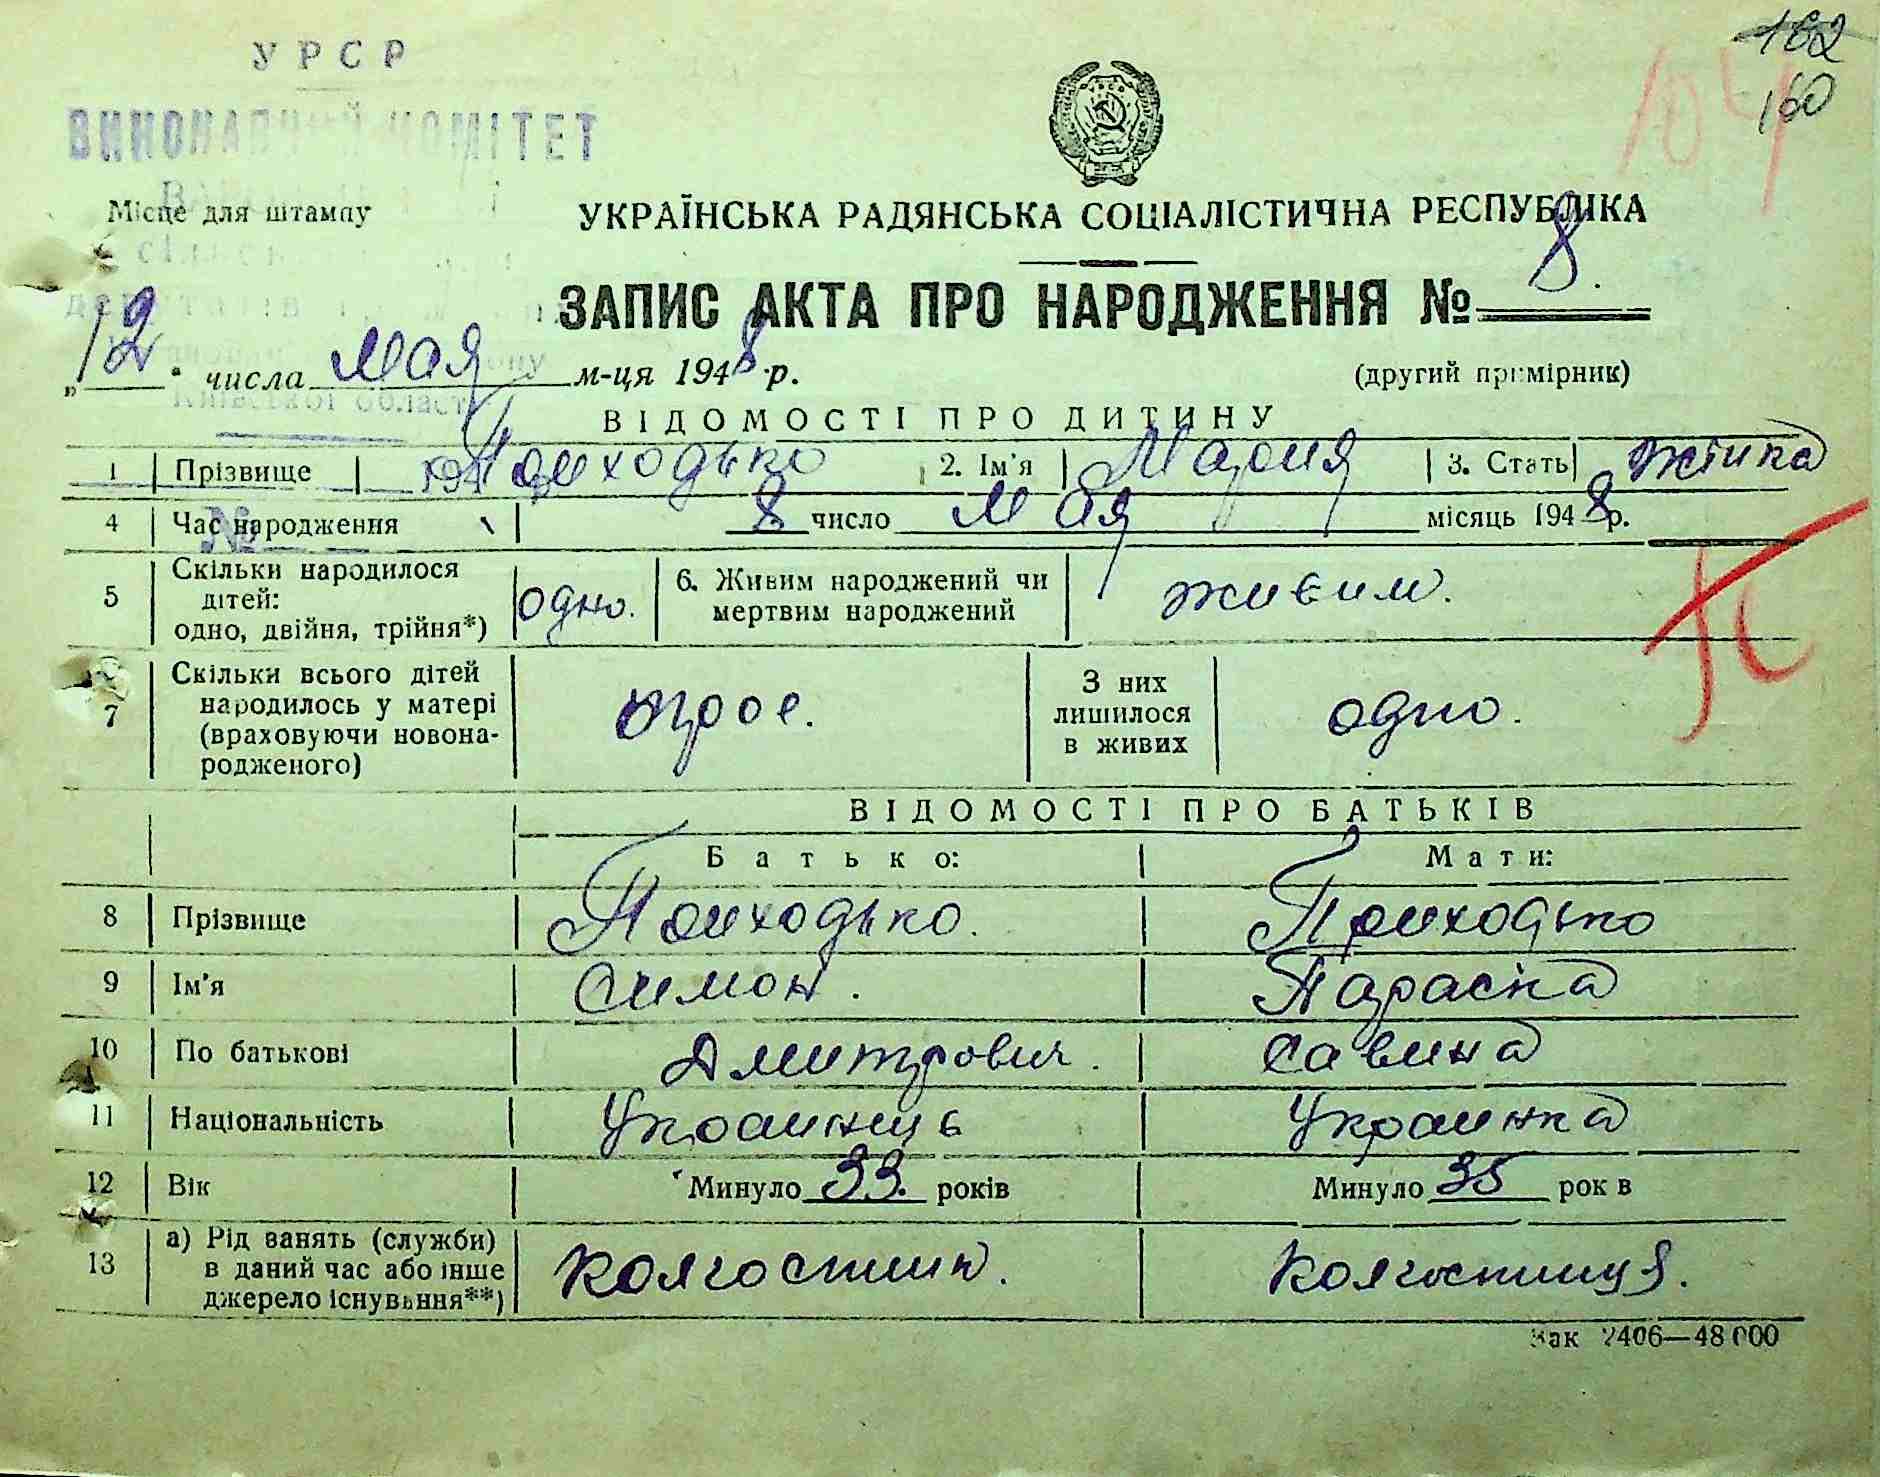 УРСР
ВИКОНАВЧИЙ КОМІТЕТ
162
160
104
Місце для штампу
УКРАЇНСЬКА РАДЯНСЬКА СОЦІАЛІСТИЧНА РЕСПУБЛІКА
ЗАПИС АКТА ПРО НАРОДЖЕННЯ № 8.
„12" числа мая м-ця 1948 р. (другий примірник)
Київської області
ВІДОМОСТІ ПРО ДИТИНУ
1 Прізвище Приходько 2. Ім'я Мария 3. Стать жінка
4 Час народження 8 число мая місяць 1948 р.
№
5 Скільки народилося дітей: одно, двійня, трійня*) одно. 6. Живим народжений чи мертвим народжений живим.
7 Скільки всього дітей народилось у матері (враховуючи новонародженого) трое. З них лишилося в живих одно.
ВІДОМОСТІ ПРО БАТЬКІВ
Батько: Мати:
8 Прізвище Приходько. Приходько
9 Ім'я Симон. Параска
10 По батькові Дмитрович. Савина
11 Національність Украинець Украинка
12 Вік Минуло 33. років Минуло 35 років
13 а) Рід занять (служби) в даний час або інше джерело існування**) Колгоспник. Колгоспниця.
Зак 2406—48000